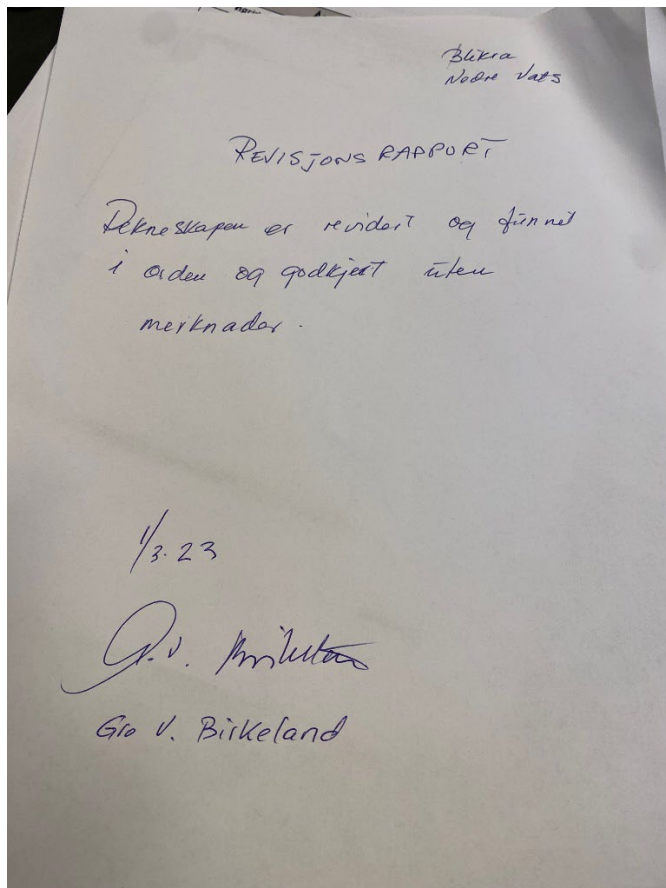 Blikra
Nedre Vats
REVISJONS RAPPORT
Rekneskapen er revidert og funnet
i orden og godkjent uten
merknader.
1/3.23
G.V. Birkeland
Gro V. Birkeland